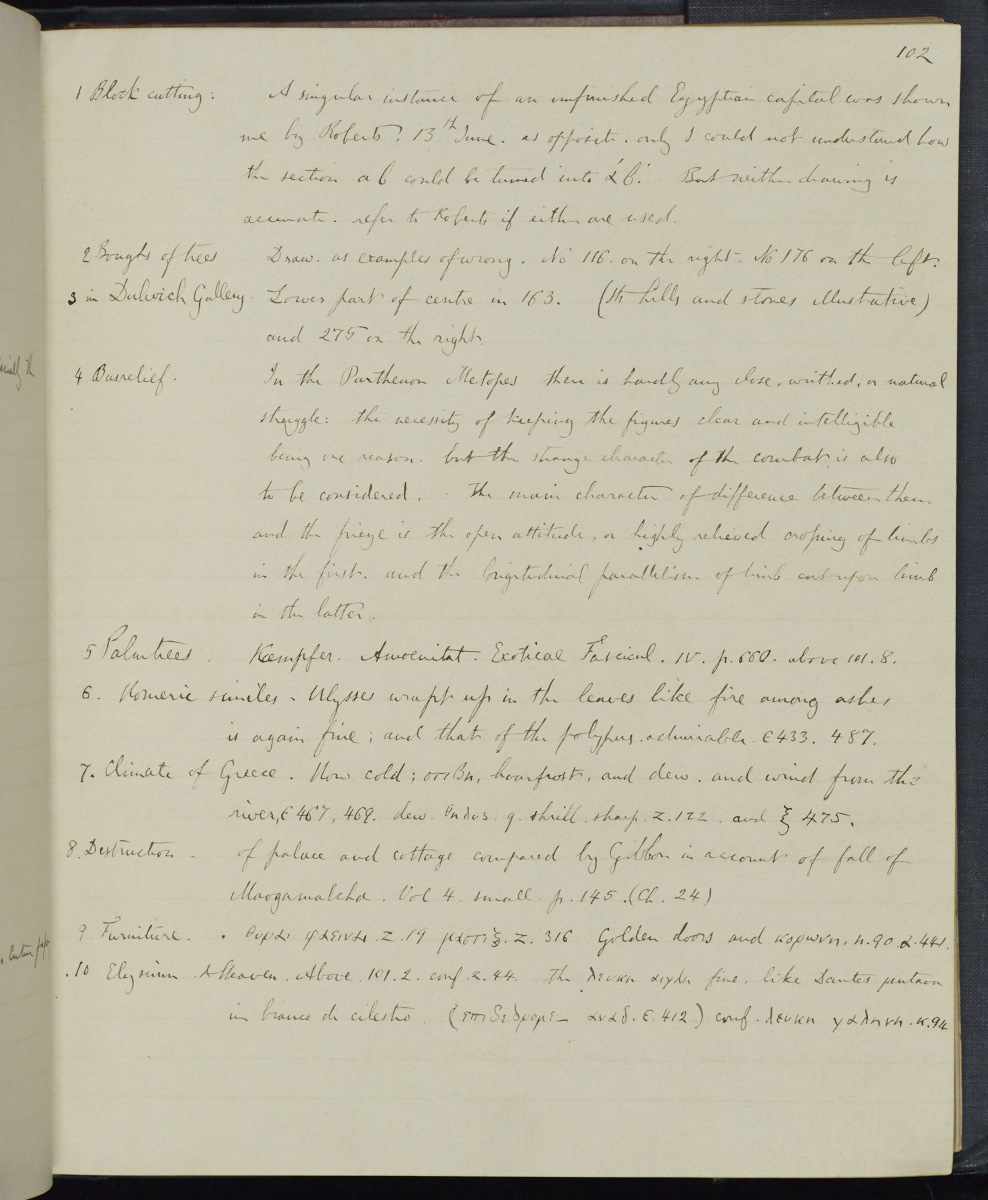 102
1 Block cutting: A singular instance of an unfinished Egyptian capital was shown
me by Roberts? 13th June. as opposite. only I could not understand how
the section a b could be turned into a' b'. But neither drawing is
accurate. refer to Roberts if either are used.
2 Boughs of trees Draw. as examples of wrong. No 116. on the right. No 176 on the left.
3 in Dulwich Gallery. Lower part of centre in 163. (The hills and stones illustrative)
and 275 on the right.
4 Basrelief. In the Parthenon Metopes there is hardly any close, writhed, or natural
struggle: the necessity of keeping the figures clear and intelligible
being one reason. but the strange character of the combat is also
to be considered. The main character of difference between them
and the frieze is the open attitude, or highly relieved crossing of limbs
in the first. and the longitudinal parallelism of limb cast upon limb
in the latter.
5 Palmtrees. Kæmpfer. Amoenitat. Exoticae Fascicul. IV. p. 660. above 101. 8.
6. Homeric similes. Ulysses wrapt up in the leaves like fire among ashes
is again fine; and that of the polypus. admirable. ε 433. 487.
7. Climate of Greece. How cold; στιβη, hoarfrost, and dew. and wind from the
river, ε 467, 469. dew. θηλυς. q. shrill. sharp. Z. 122. and ξ 475.
8. Destruction. of palace and cottage compared by Gibbon in account of fall of
Maogamalcha. Vol 4. small p. 145. (Ch. 24)
9. Furniture. θυραι φαειναι. Z. 19 μαστιξ. Z. 316 Golden doors and κορωνη. η. 90. α. 441.
10 Elysium & Heaven. Above. 101. 2. conf. ζ. 44. the λευκη αιγλη fine. like Dantes
in bianco di cilestro. (επιδεδρομε– αναδ. ε. 412.) conf. λευκη γαληνη. κ. 94